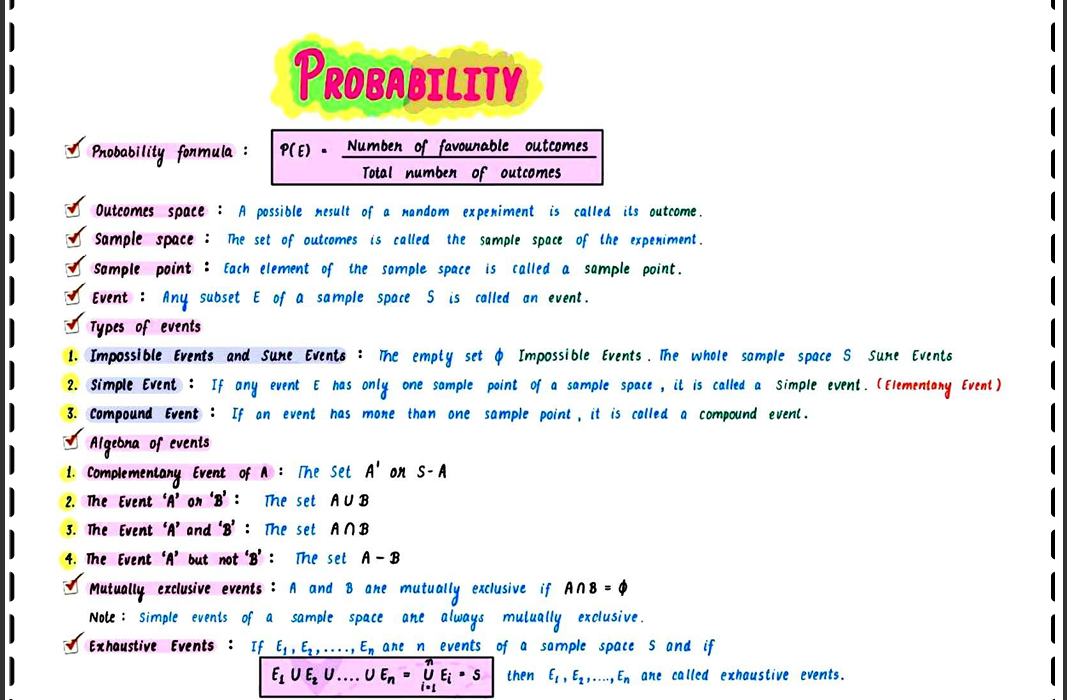 PROBABILITY
Probability formula : P(E) = Number of favourable outcomes / Total number of outcomes
Outcomes space : A possible result of a random experiment is called its outcome.
Sample space : The set of outcomes is called the sample space of the experiment.
Sample point : Each element of the sample space is called a sample point.
Event : Any subset E of a sample space S is called an event.
Types of events
1. Impossible Events and Sure Events : The empty set ϕ Impossible Events. The whole sample space S Sure Events
2. Simple Event : If any event E has only one sample point of a sample space, it is called a Simple event. (Elementary Event)
3. Compound Event : If an event has more than one sample point, it is called a compound event.
Algebra of events
1. Complementary Event of A : The Set A' or S-A
2. The Event 'A' or 'B' : The set A ∪ B
3. The Event 'A' and 'B' : The set A ∩ B
4. The Event 'A' but not 'B' : The set A - B
Mutually exclusive events : A and B are mutually exclusive if A∩B = ϕ
Note : Simple events of a sample space are always mutually exclusive.
Exhaustive Events : If E₁, E₂, ...., Eₙ are n events of a sample space S and if
E₁ ∪ E₂ ∪ .... ∪ Eₙ = n ∪ i=1 Eᵢ = S then E₁, E₂, ...., Eₙ are called exhaustive events.